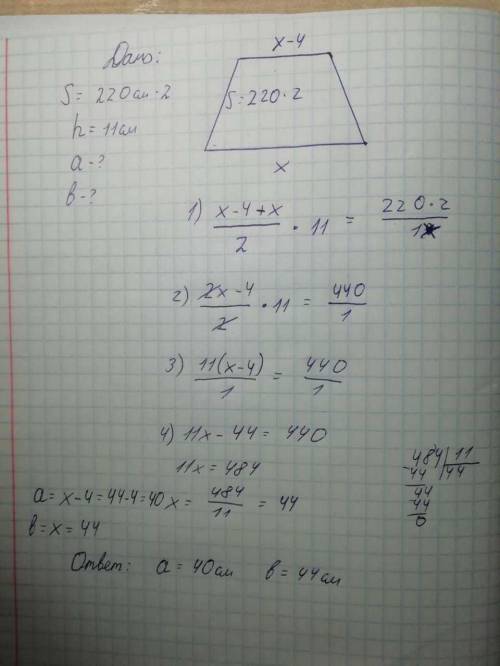 Дано:
S = 220см·2
h = 11см
a - ?
в - ?
x-4
S = 220·2
x
1) \frac{x-4+x}{2} · 11 = \frac{220·2}{1}
2) \frac{2x-4}{2} · 11 = \frac{440}{1}
3) \frac{11(x-4)}{1} = \frac{440}{1}
4) 11x - 44 = 440
11x = 484
x = \frac{484}{11} = 44
484 | 11
44 | 44
44
44
0
a = x-4 = 44-4 = 40
в = x = 44
Ответ: a = 40см в = 44см